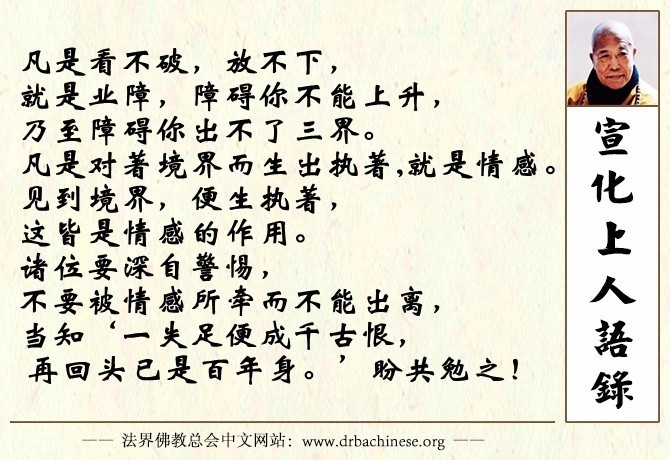 凡是看不破，放不下，
就是业障，障碍你不能上升，
乃至障碍你出不了三界。
凡是对著境界而生出执著,就是情感。
见到境界，便生执著，
这皆是情感的作用。
诸位要深自警惕，
不要被情感所牵而不能出离，
当知‘一失足便成千古恨，
再回头已是百年身。’盼共勉之！
宣化上人語錄
—— 法界佛教总会中文网站：www.drbachinese.org ——